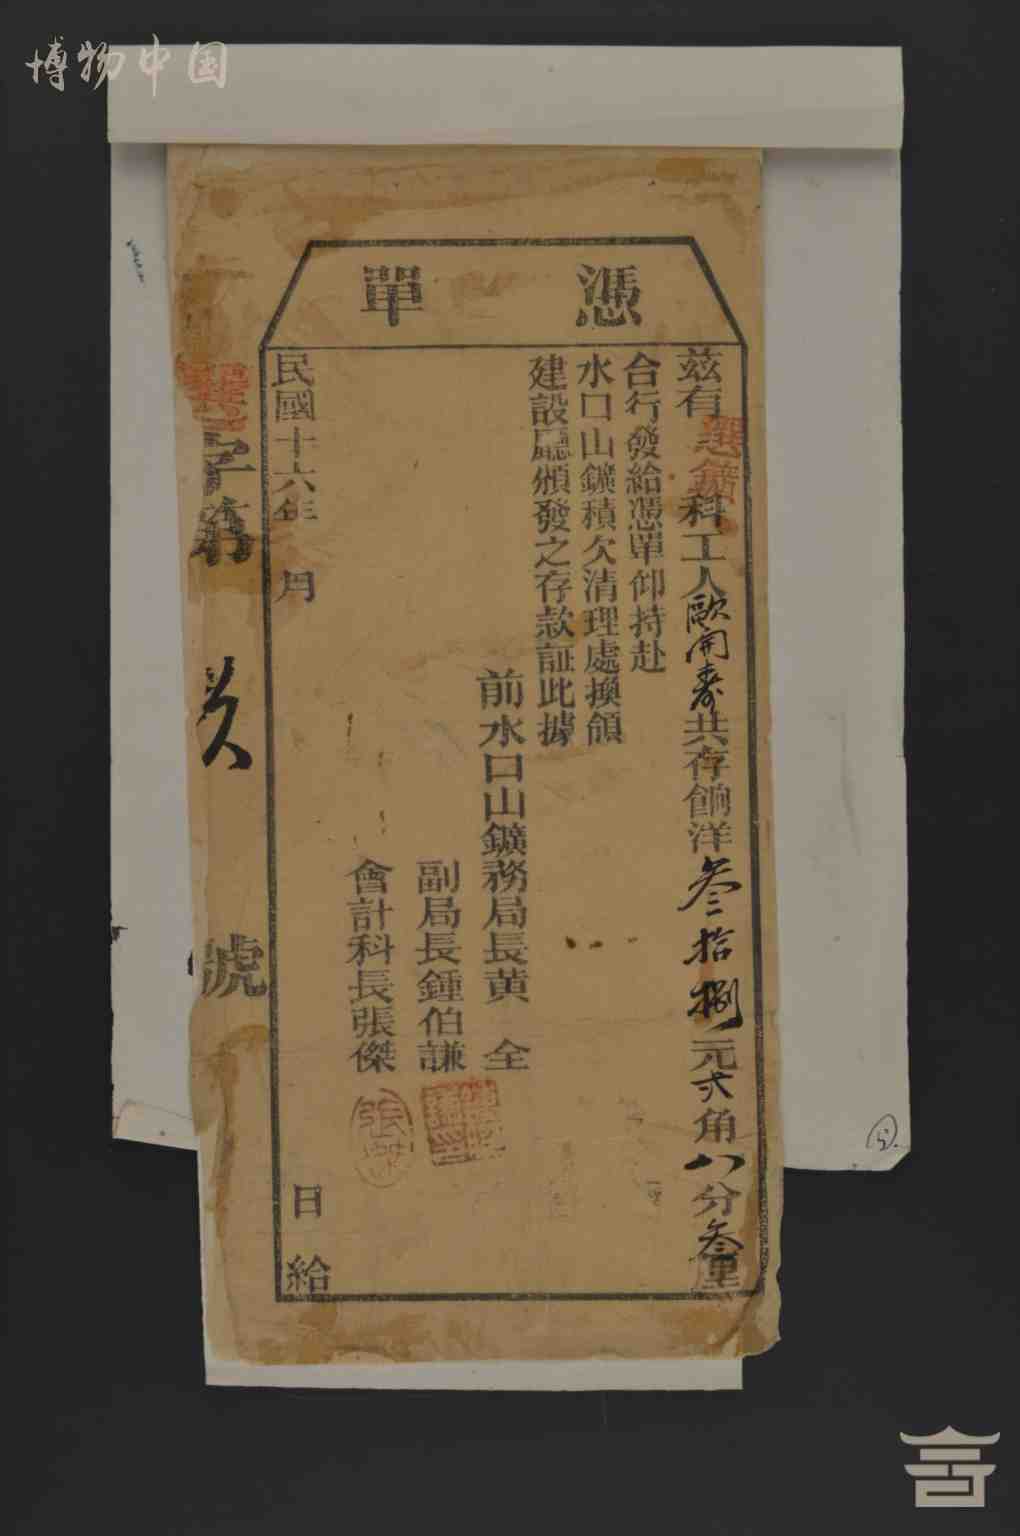 博物中国
憑單
茲有選鑛科工人歐開壽共存餉洋叁拾捌元弍角八分叁厘
合行發給憑單仰持赴
水口山鑛積欠清理處換領
建設廳頒發之存款証此據
前水口山鑛務局長黃全
副局長鍾伯謙
會計科長張傑
民國十六年 月 日給
字第 號